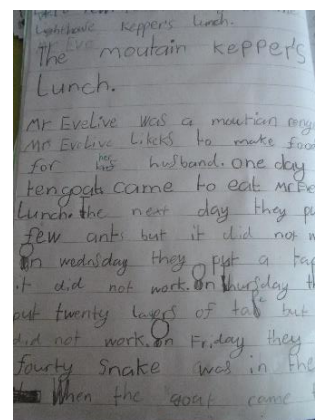 Lighthouse Kepper's Lunch.
The Eve moutain kepper's
Lunch.
Mr Evelive was a moutian
Mr Evelive likeks to make
for her husband. One day
tengoat came to eat Mr
Lunch. The next day they
few ants but it did not
On wednsday they put a
it did not work. On thursday
out twenty layers of but
did not work. On Friday they
fourty Snake was in the
When the goat came